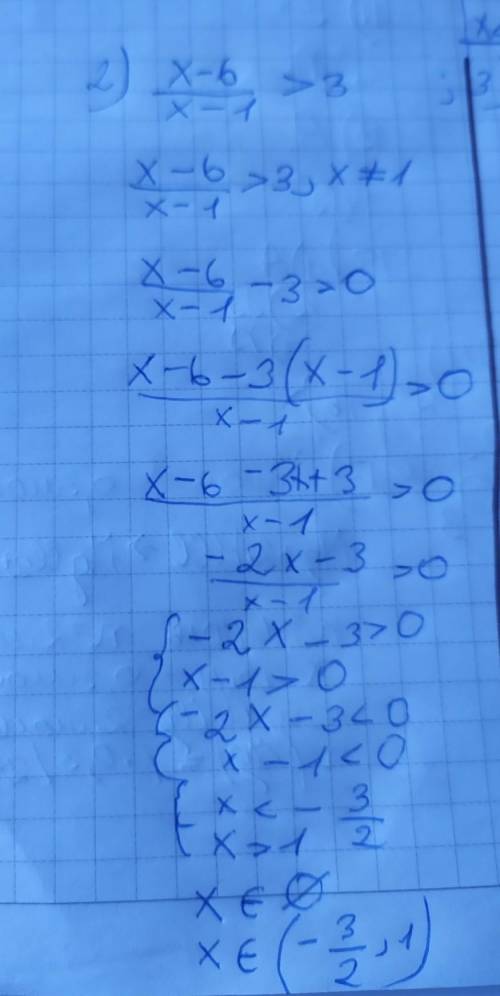 2) (x-6)/(x-1) > 3
(x-6)/(x-1) > 3, x ≠ 1
(x-6)/(x-1) - 3 > 0
(x-6-3(x-1))/(x-1) > 0
(x-6-3x+3)/(x-1) > 0
(-2x-3)/(x-1) > 0
{ -2x-3 > 0
x-1 > 0
{ -2x-3 < 0
x-1 < 0
{ x < -3/2
x > 1
x ∈ ∅
x ∈ (-3/2, 1)